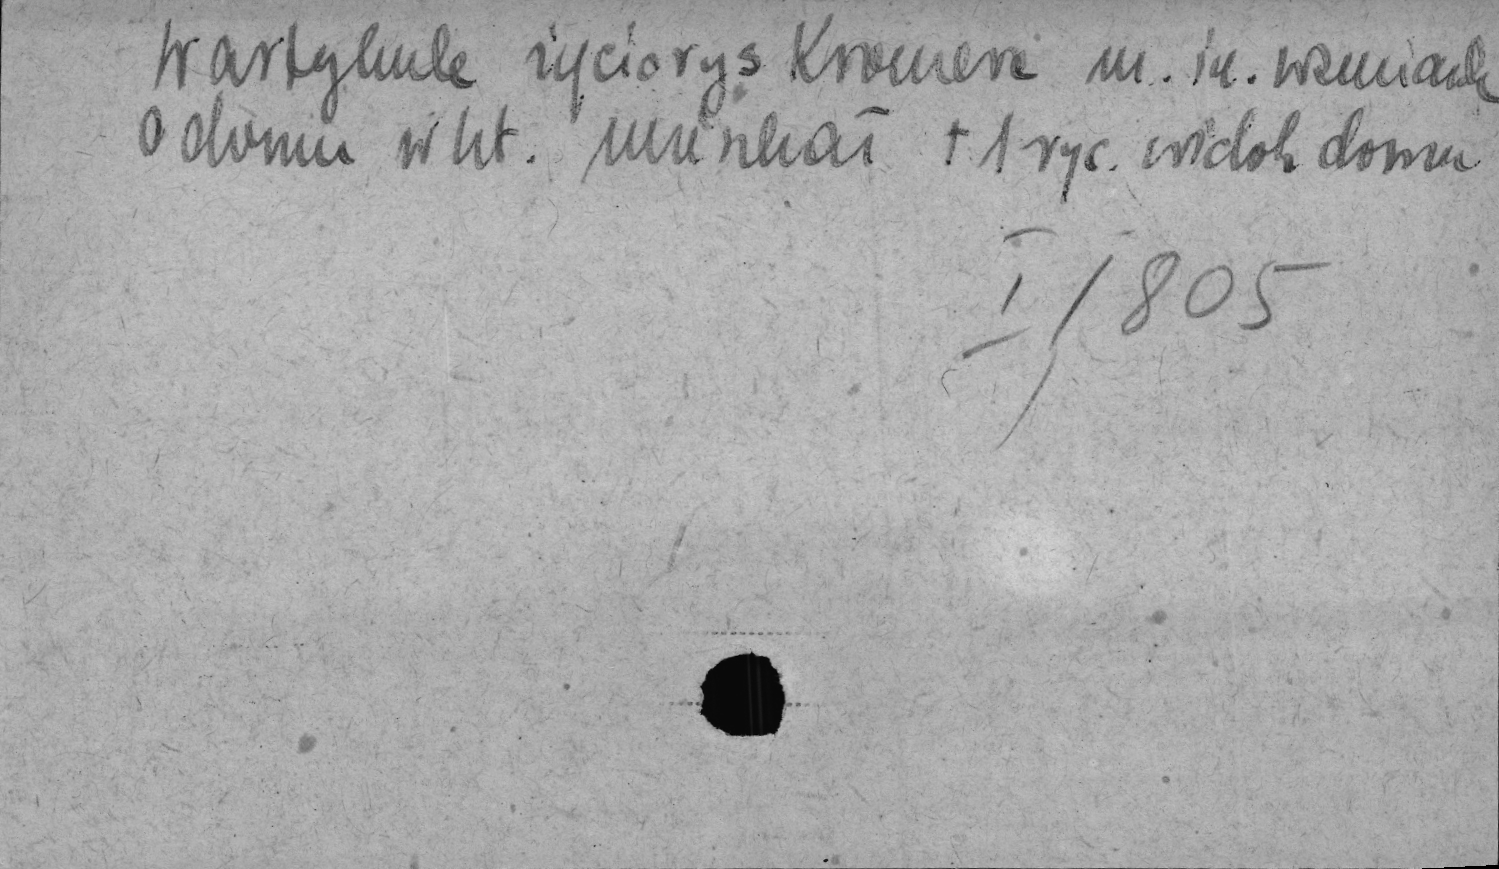 W artykule życiorys Kromera m. in. wzmianka
o domu w kt. mieszkał + 1 ryc. widok domu
I/805